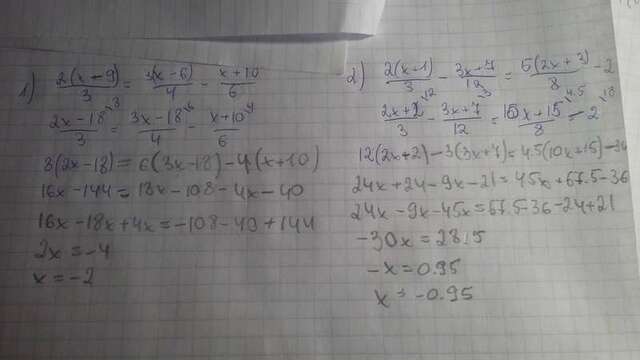 1) 2(x-9)/3 = 3(x-6)/4 - (x+10)/6
(2x-18)/3 \8 = (3x-18)/4 \6 - (x+10)/6 \4
8(2x-18) = 6(3x-18) - 4(x+10)
16x - 144 = 18x - 108 - 4x - 40
16x - 18x + 4x = -108 - 40 + 144
2x = -4
x = -2
2) 2(x+1)/3 - (3x+7)/12 = 5(2x+3)/8 - 2
(2x+2)/3 \12 - (3x+7)/12 \3 = (10x+15)/8 \4.5 - 2 \18
12(2x+2) - 3(3x+7) = 4.5(10x+15) - 36
24x + 24 - 9x - 21 = 45x + 67.5 - 36
24x - 9x - 45x = 67.5 - 36 - 24 + 21
-30x = 28.5
-x = 0.95
x = -0.95